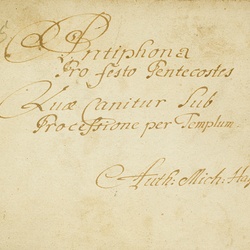 Antiphona
Pro festo Pentecostes
Quæ Canitur Sub
Processione per Templum.
Auth: Mich: Hay